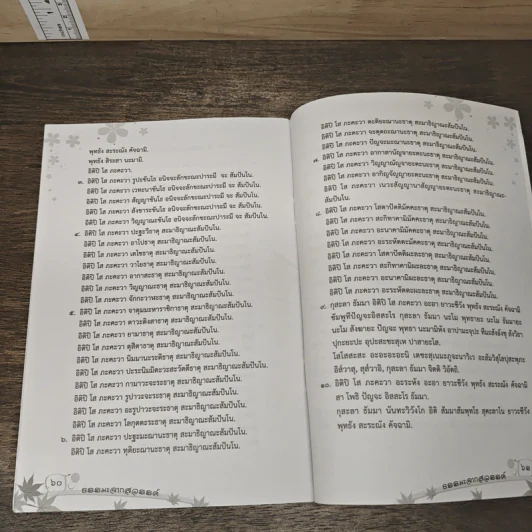 พุทธัง สะระณัง คัจฉามิ.
พุทธัง สิระสา นะมามิ.
อิติปิ โส ภะคะวา.
๓. อิติปิ โส ภะคะวา รูปะขันโธ อนิจจะลักขะณะปาระมี จะ สัมปันโน.
อิติปิ โส ภะคะวา เวทะนาขันโธ อนิจจะลักขะณะปาระมี จะ สัมปันโน.
อิติปิ โส ภะคะวา สัญญาขันโธ อนิจจะลักขะณะปาระมี จะ สัมปันโน.
อิติปิ โส ภะคะวา สังขาระขันโธ อนิจจะลักขะณะปาระมี จะ สัมปันโน.
อิติปิ โส ภะคะวา วิญญาณะขันโธ อนิจจะลักขะณะปาระมี จะ สัมปันโน.
๔. อิติปิ โส ภะคะวา ปะฐะวีธาตุ สะมาธิญาณะสัมปันโน.
อิติปิ โส ภะคะวา อาโปธาตุ สะมาธิญาณะสัมปันโน.
อิติปิ โส ภะคะวา เตโชธาตุ สะมาธิญาณะสัมปันโน.
อิติปิ โส ภะคะวา วาโยธาตุ สะมาธิญาณะสัมปันโน.
อิติปิ โส ภะคะวา อากาสะธาตุ สะมาธิญาณะสัมปันโน.
อิติปิ โส ภะคะวา วิญญาณะธาตุ สะมาธิญาณะสัมปันโน.
อิติปิ โส ภะคะวา จักกะวาฬะธาตุ สะมาธิญาณะสัมปันโน.
๕. อิติปิ โส ภะคะวา จาตุมมะหาราชิกาธาตุ สะมาธิญาณะสัมปันโน.
อิติปิ โส ภะคะวา ตาวะติงสาธาตุ สะมาธิญาณะสัมปันโน.
อิติปิ โส ภะคะวา ยามาธาตุ สะมาธิญาณะสัมปันโน.
อิติปิ โส ภะคะวา ตุสิตาธาตุ สะมาธิญาณะสัมปันโน.
อิติปิ โส ภะคะวา นิมมานะระตีธาตุ สะมาธิญาณะสัมปันโน.
อิติปิ โส ภะคะวา ปะระนิมมิตะวะสะวัตตีธาตุ สะมาธิญาณะสัมปันโน.
อิติปิ โส ภะคะวา กามาวะจะระธาตุ สะมาธิญาณะสัมปันโน.
อิติปิ โส ภะคะวา รูปาวะจะระธาตุ สะมาธิญาณะสัมปันโน.
อิติปิ โส ภะคะวา อะรูปาวะจะระธาตุ สะมาธิญาณะสัมปันโน.
อิติปิ โส ภะคะวา โลกุตตะระธาตุ สะมาธิญาณะสัมปันโน.
๖. อิติปิ โส ภะคะวา ปะฐะมะฌานะธาตุ สะมาธิญาณะสัมปันโน.
อิติปิ โส ภะคะวา ทุติยะฌานะธาตุ สะมาธิญาณะสัมปันโน.
๖๐
ธรรมะจากสวรรค์
อิติปิ โส ภะคะวา ตะติยะฌานะธาตุ สะมาธิญาณะสัมปันโน.
อิติปิ โส ภะคะวา จะตุตถะฌานะธาตุ สะมาธิญาณะสัมปันโน.
อิติปิ โส ภะคะวา ปัญจะมะฌานะธาตุ สะมาธิญาณะสัมปันโน.
๗. อิติปิ โส ภะคะวา อากาสานัญจายะตะนะธาตุ สะมาธิญาณะสัมปันโน.
อิติปิ โส ภะคะวา วิญญาณัญจายะตะนะธาตุ สะมาธิญาณะสัมปันโน.
อิติปิ โส ภะคะวา อากิญจัญญายะตะนะธาตุ สะมาธิญาณะสัมปันโน.
อิติปิ โส ภะคะวา เนวะสัญญานาสัญญายะตะนะธาตุ สะมาธิญาณะ-
สัมปันโน.
๘. อิติปิ โส ภะคะวา โสตาปัตติมัคคะธาตุ สะมาธิญาณะสัมปันโน.
อิติปิ โส ภะคะวา สะกิทาคามิมัคคะธาตุ สะมาธิญาณะสัมปันโน.
อิติปิ โส ภะคะวา อะนาคามิมัคคะธาตุ สะมาธิญาณะสัมปันโน.
อิติปิ โส ภะคะวา อะระหัตตะมัคคะธาตุ สะมาธิญาณะสัมปันโน.
อิติปิ โส ภะคะวา โสตาปัตติผะละธาตุ สะมาธิญาณะสัมปันโน.
อิติปิ โส ภะคะวา สะกิทาคามิผะละธาตุ สะมาธิญาณะสัมปันโน.
อิติปิ โส ภะคะวา อะนาคามิผะละธาตุ สะมาธิญาณะสัมปันโน.
อิติปิ โส ภะคะวา อะระหัตตะผะละธาตุ สะมาธิญาณะสัมปันโน.
๙. กุสะลา ธัมมา อิติปิ โส ภะคะวา อะอา ยาวะชีวัง พุทธัง สะระณัง คัจฉามิ
ชัมพูทีปัญจะอิสสะโร กุสะลา ธัมมา นะโม พุทธายะ นะโม ธัมมายะ
นะโม สังฆายะ ปัญจะ พุทธา นะมามิหัง อาปามะจุปะ ทีมะสังอังขุ สังวิธา
ปุกะยะปะ อุปะสะชะสุเห ปาสายะโส.
โสโสสะสะ อะอะอะอะนิ เตชะสุเนมะภูจะนาวิเว อะสังวิสุโลปุสะพุภะ
อิสวาสุ, สุสวาอิ, กุสะลา ธัมมา จิตติ วิอัตถิ.
๑๐. อิติปิ โส ภะคะวา อะระหัง อะอา ยาวะชีวัง พุทธัง สะระณัง คัจฉามิ
สา โพธิ ปัญจะ อิสสะโร ธัมมา.
กุสะลา ธัมมา นันทะวิวังโก อิติ สัมมาสัมพุทโธ สุคะลาโน ยาวะชีวัง
พุทธัง สะระณัง คัจฉามิ.
ธรรมะจากสวรรค์